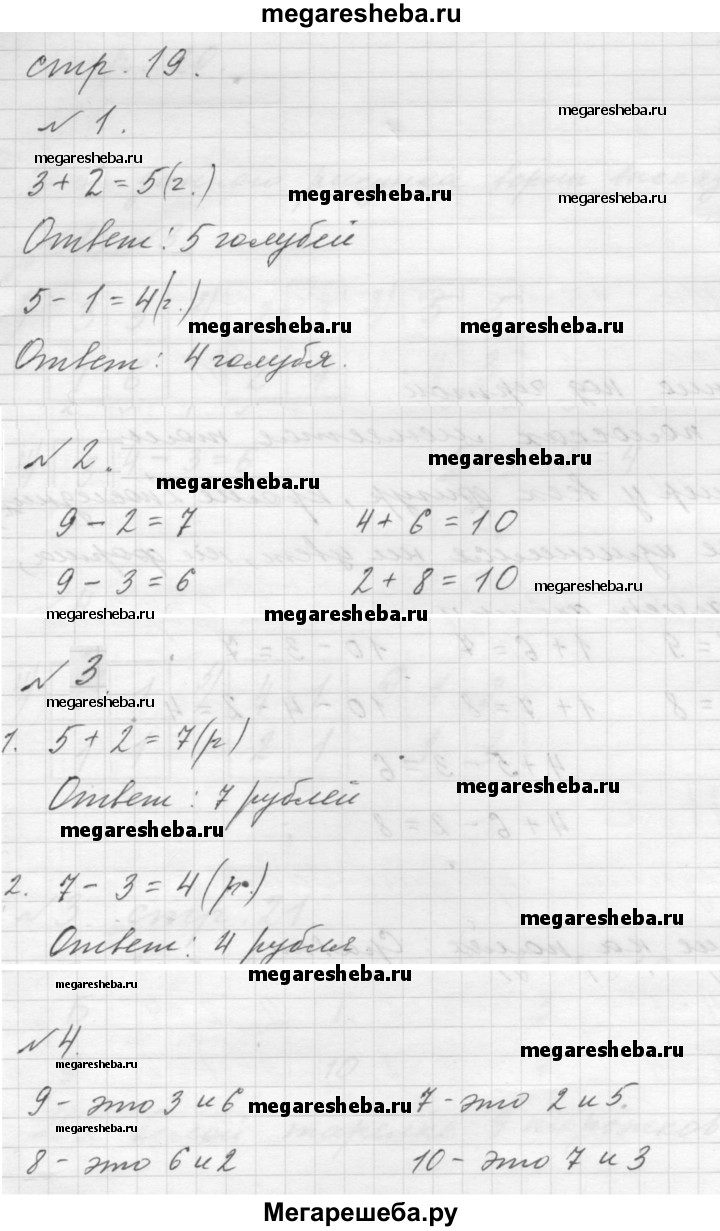 megaresheba.ru
стр. 19.
№ 1.
megaresheba.ru
megaresheba.ru
3 + 2 = 5 (г.)
megaresheba.ru
megaresheba.ru
Ответ: 5 голубей
5 - 1 = 4 (г.)
megaresheba.ru
megaresheba.ru
Ответ: 4 голубя.
№ 2.
megaresheba.ru
megaresheba.ru
9 - 2 = 7 4 + 6 = 10
9 - 3 = 6 2 + 8 = 10
megaresheba.ru
megaresheba.ru
№ 3.
megaresheba.ru
1. 5 + 2 = 7 (р)
Ответ: 7 рублей
megaresheba.ru
megaresheba.ru
2. 7 - 3 = 4 (р.)
megaresheba.ru
Ответ: 4 рубля.
megaresheba.ru
megaresheba.ru
№ 4.
megaresheba.ru
megaresheba.ru
9 - это 3 и 6 7 - это 2 и 5.
megaresheba.ru
megaresheba.ru
8 - это 6 и 2 10 - это 7 и 3
Мегарешеба.ру